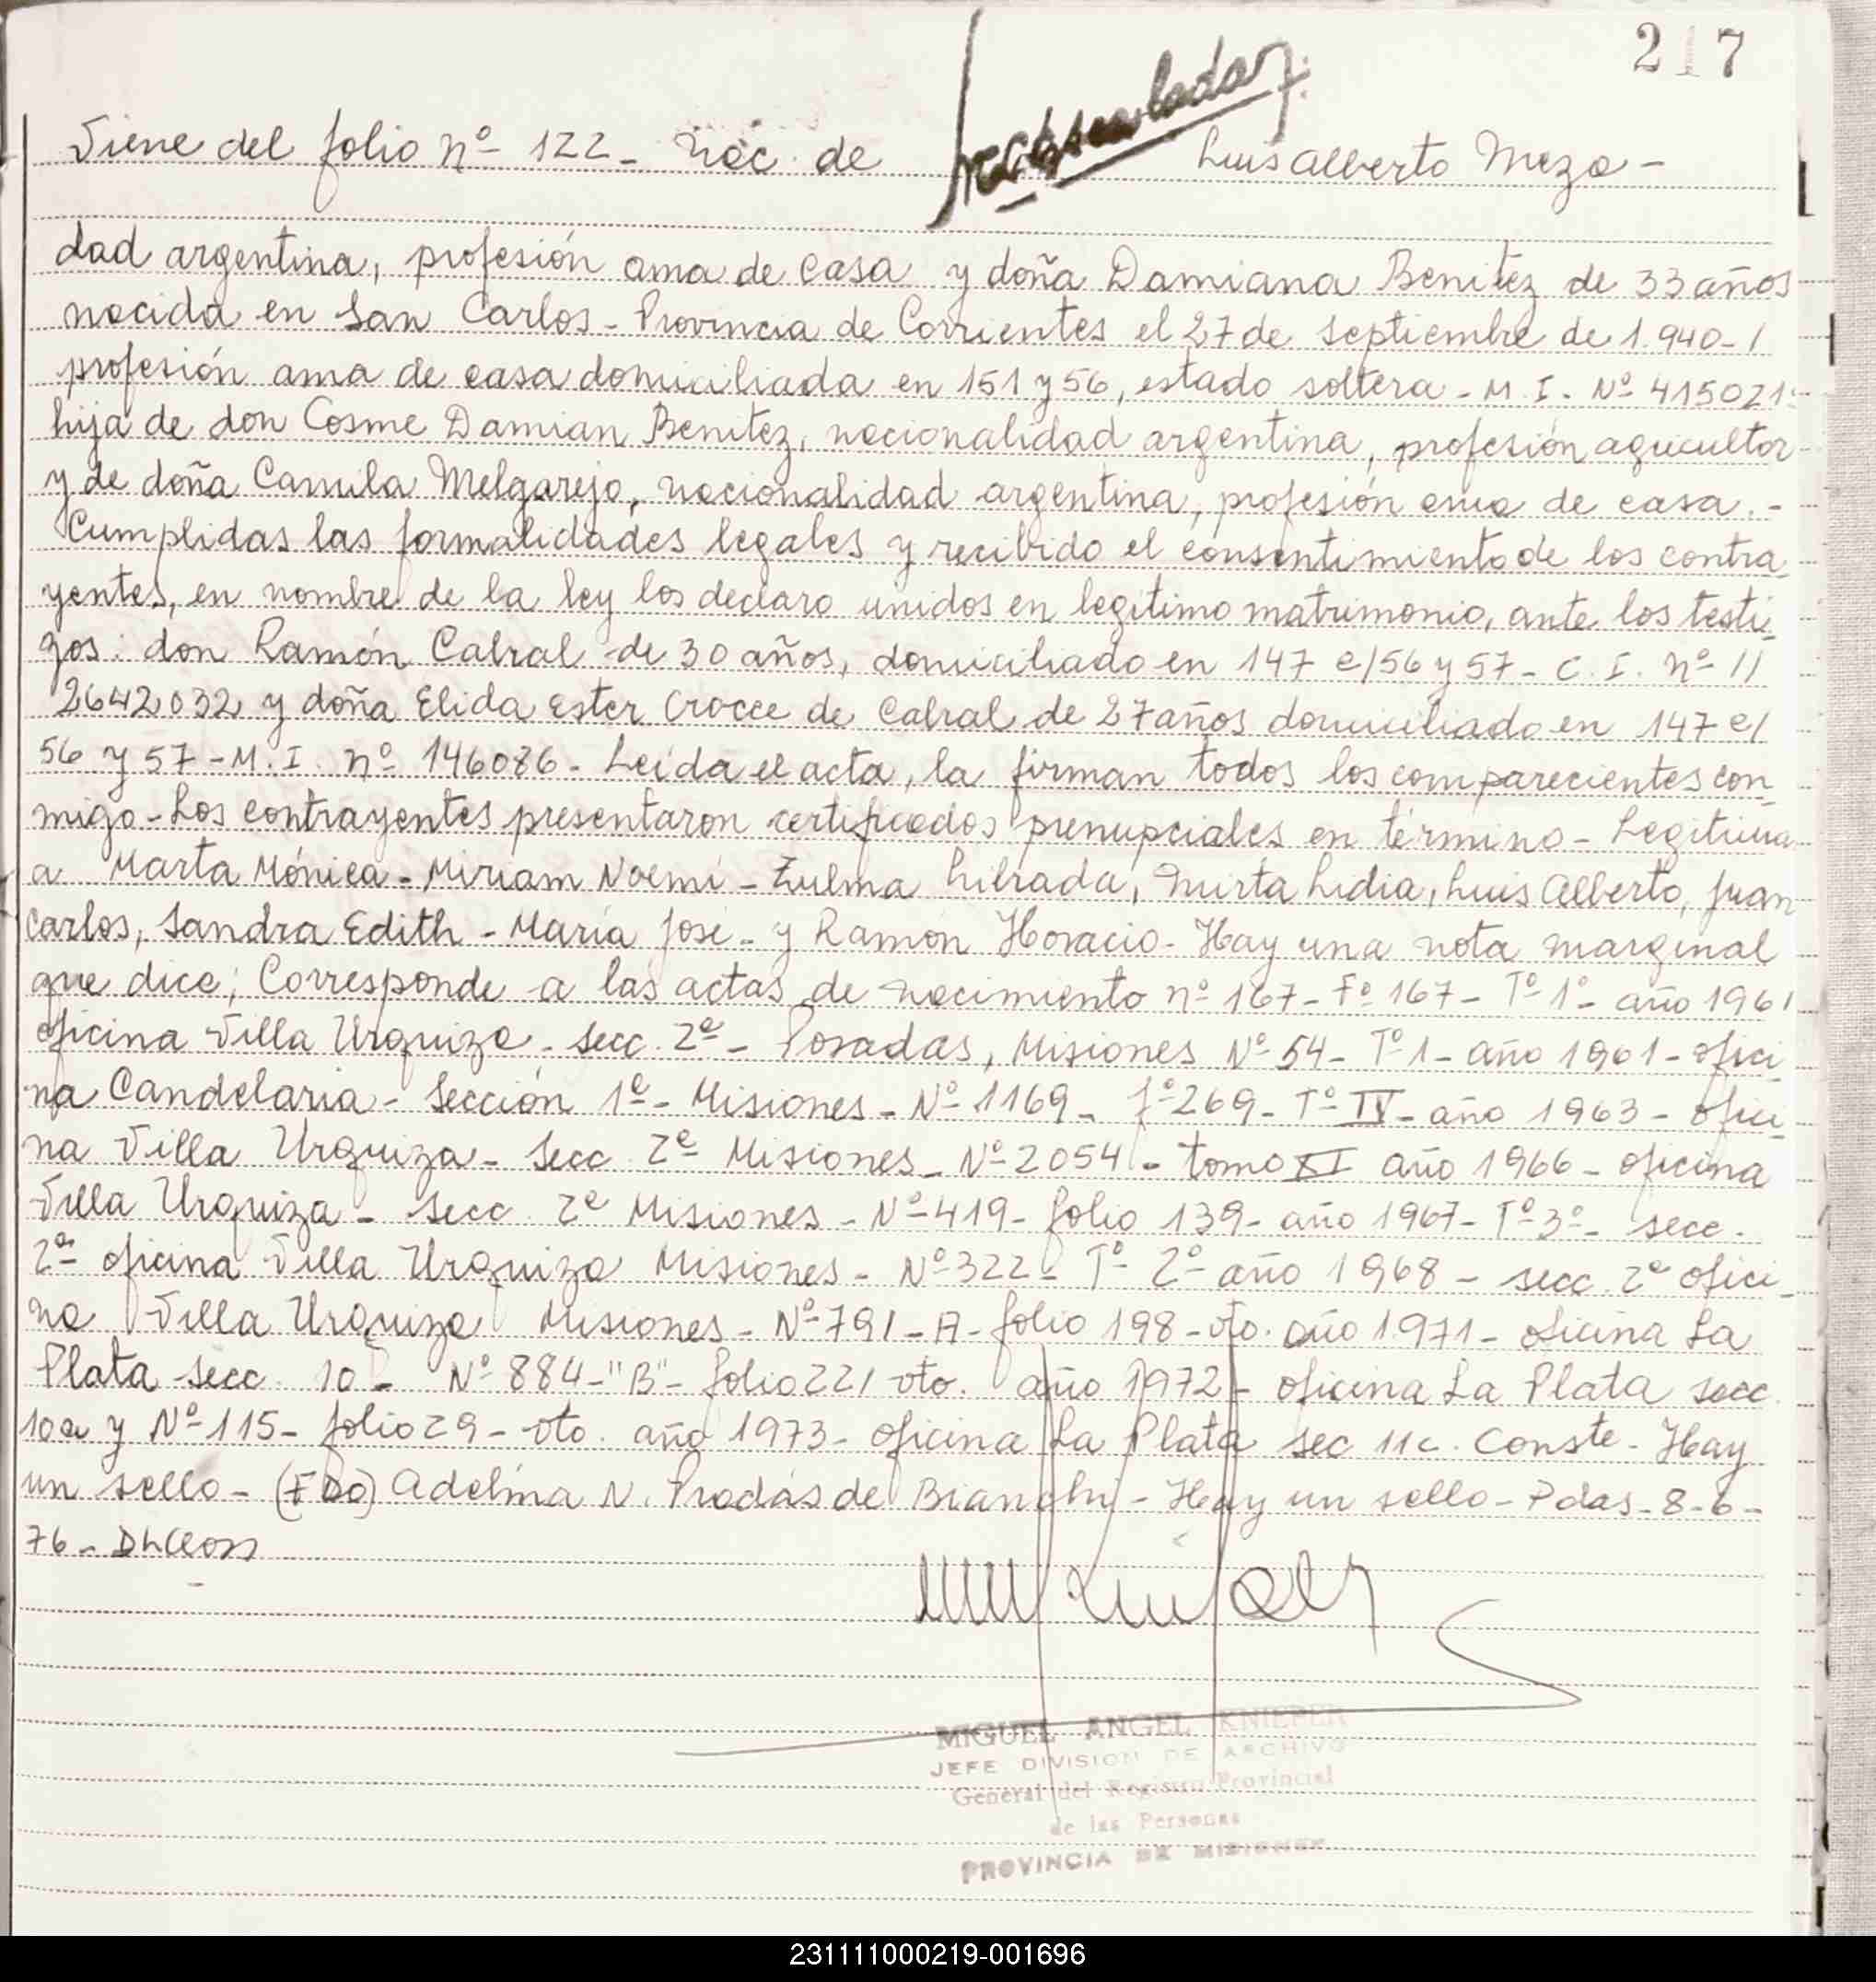 217
Viene del folio nº 122- Nac. de Luis Alberto Meza-
dad argentina, profesión ama de casa y doña Damiana Benitez de 33 años
nacida en San Carlos - Provincia de Corrientes el 27 de Septiembre de 1.940-/
profesión ama de casa domiciliada en 151 y 56, estado soltera - M. I. Nº 415021
hija de don Cosme Damian Benitez, nacionalidad argentina, profesión agricultor
y de doña Camila Melgarejo, nacionalidad argentina, profesión ama de casa.-
Cumplidas las formalidades legales y recibido el consentimiento de los contra
yentes, en nombre de la ley los declaro unidos en legítimo matrimonio, ante los testi
gos: don Ramón Cabral de 30 años, domiciliado en 147 e/56 y 57 - C. I. nº //
2642032 y doña Elida Ester Crocce de Cabral de 27 años domiciliado en 147 e/
56 y 57 - M. I. nº 146086 - Leída el acta, la firman todos los comparecientes con
migo - Los contrayentes presentaron certificados prenupciales en término - Legitima
a Marta Mónica - Miriam Noemí - Zulma Librada, Mirta Lidia, Luis Alberto, Juan
Carlos, Sandra Edith - María José - y Ramón Horacio - Hay una nota marginal
que dice; Corresponde a las actas de nacimiento nº 167 - Fº 167 - Tº 1º - año 1961
oficina Villa Urquiza - Secc. 2ª - Posadas, Misiones Nº 54 - Tº 1 - año 1961 - ofici
na Candelaria - Sección 1ª - Misiones - Nº 1169 - fº 269 - Tº IV - año 1963 - ofici
na Villa Urquiza - Secc 2ª Misiones - Nº 2054 - tomo XI año 1966 - oficina
Villa Urquiza - Secc. 2ª Misiones - Nº 419 - folio 139 - año 1967 - Tº 3º - secc.
2ª oficina Villa Urquiza Misiones - Nº 322 - Tº 2º año 1968 - secc. 2ª ofici
na Villa Urquiza Misiones - Nº 791 - A - folio 198 - vto. año 1971 - oficina La
Plata - secc. 10 - Nº 884 - "B" - folio 221 vto. año 1972 - oficina La Plata secc.
10a y Nº 115 - folio 29 - vto. año 1973 - oficina La Plata sec 11c. Conste - Hay
un sello - (FDO) Adelma N. Pradás de Bianchi - Hay un sello - Pdas - 8 - 6 -
76 -
MIGUEL ANGEL KNIEPER
JEFE DIVISION DE ARCHIVO
General del Registro Provincial
de las Personas
PROVINCIA DE MISIONES
231111000219-001696